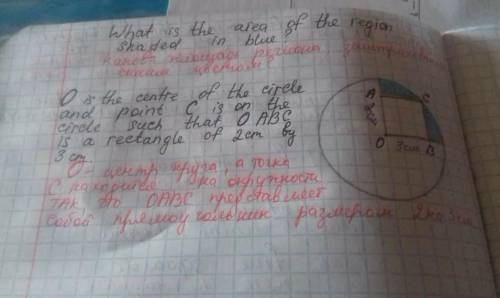 What is the area of the region
shaded in blue?
Какова площадь региона,
синим цветом?
O is the centre of the circle
and point C is on the
circle such that OABC
is a rectangle of 2cm by
3cm
O - центр круга, а точка
C находится на окружности
так что OABC представляет
собой прямоугольник размером 2 на 3см
A
C
2см
O 3см B